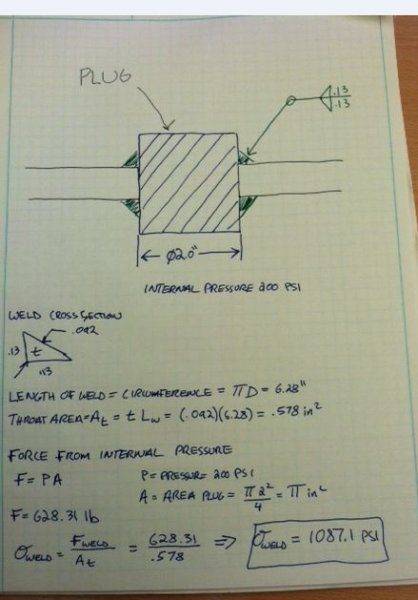 PLUG
.13
.13
Ø2.0"
INTERNAL PRESSURE 200 PSI
WELD CROSS SECTION
.092
.13
t
.13
LENGTH OF WELD = CIRCUMFERENCE = πD = 6.28"
THROAT AREA = At = t Lw = (.092)(6.28) = .578 in²
FORCE FROM INTERNAL PRESSURE
F = PA P = PRESSURE 200 PSI
A = AREA PLUG = π2²/4 = π in²
F = 628.31 lb
σWELD = FWELD/At = 628.31/.578 ⇒ σWELD = 1087.1 PSI